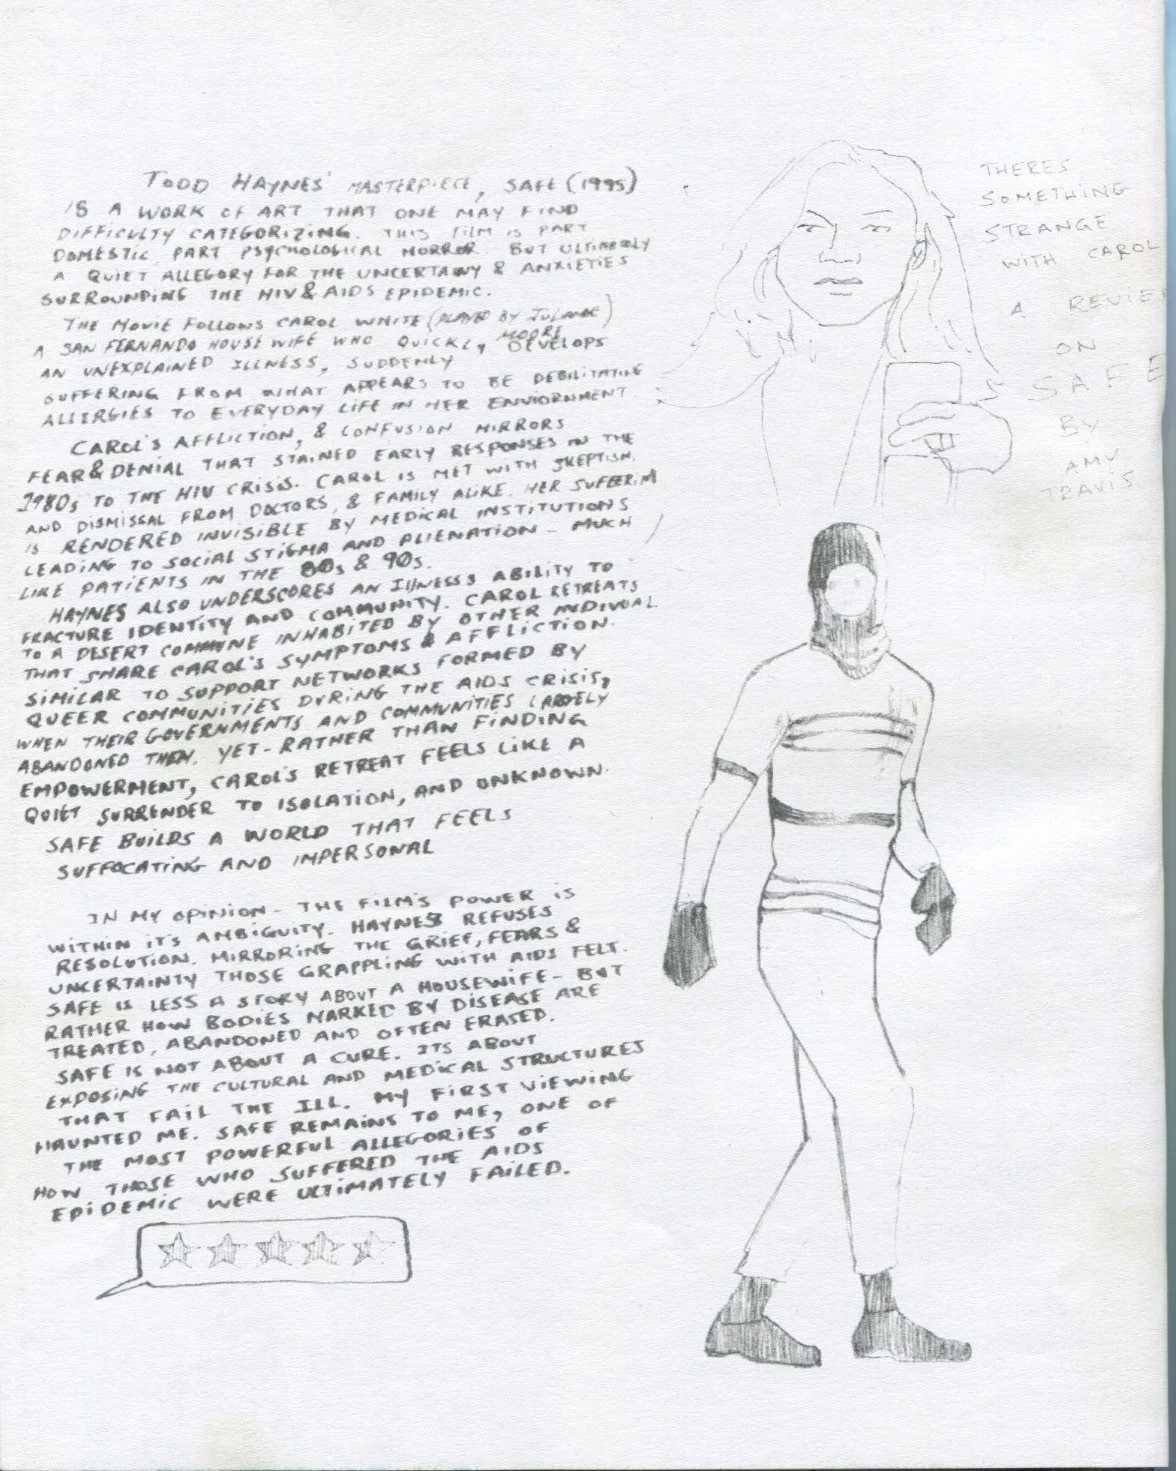 TODD HAYNES' MASTERPIECE, SAFE (1995)
IS A WORK OF ART THAT ONE MAY FIND
DIFFICULTY CATEGORIZING. THIS FILM IS PART
DOMESTIC, PART PSYCHOLOGICAL HORROR BUT ULTIMATELY
A QUIET ALLEGORY FOR THE UNCERTAINY & ANXIETIES
SURROUNDING THE HIV & AIDS EPIDEMIC.
THE MOVIE FOLLOWS CAROL WHITE (PLAYED BY JULIANNE MOORE)
A SAN FERNANDO HOUSE WIFE WHO QUICKLY DEVELOPS
AN UNEXPLAINED ILLNESS, SUDDENLY
SUFFERING FROM WHAT APPEARS TO BE DEBILITATING
ALLERGIES TO EVERYDAY LIFE IN HER ENVIORNMENT.
CAROL'S AFFLICTION, & CONFUSION MIRRORS
FEAR & DENIAL THAT STAINED EARLY RESPONSES IN THE
1980s TO THE HIV CRISIS. CAROL IS MET WITH SKEPTISM,
AND DISMISSAL FROM DOCTORS, & FAMILY ALIKE. HER SUFFERIN
IS RENDERED INVISIBLE BY MEDICAL INSTITUTIONS
LEADING TO SOCIAL STIGMA AND ALIENATION - MUCH
LIKE PATIENTS IN THE 80s & 90s.
HAYNES ALSO UNDERSCORES AN ILLNESS'S ABILITY TO
FRACTURE IDENTITY AND COMMUNITY. CAROL RETREATS
TO A DESERT COMMUNE INHABITED BY OTHER INDIVUAL
THAT SHARE CAROL'S SYMPTOMS & AFFLICTION.
SIMILAR TO SUPPORT NETWORKS FORMED BY
QUEER COMMUNITIES DURING THE AIDS CRISIS,
WHEN THEIR GOVERNMENTS AND COMMUNITIES LARGELY
ABANDONED THEM. YET - RATHER THAN FINDING
EMPOWERMENT, CAROL'S RETREAT FEELS LIKE A
QUIET SURRENDER TO ISOLATION, AND UNKNOWN.
SAFE BUILDS A WORLD THAT FEELS
SUFFOCATING AND IMPERSONAL
IN MY OPINION - THE FILM'S POWER IS
WITHIN IT'S AMBIGUITY. HAYNES REFUSES
RESOLUTION. MIRRORING THE GRIEF, FEARS &
UNCERTAINTY THOSE GRAPPLING WITH AIDS FELT.
SAFE IS LESS A STORY ABOUT A HOUSEWIFE - BUT
RATHER HOW BODIES MARKED BY DISEASE ARE
TREATED, ABANDONED AND OFTEN ERASED.
SAFE IS NOT ABOUT A CURE. ITS ABOUT
EXPOSING THE CULTURAL AND MEDICAL STRUCTURES
THAT FAIL THE ILL. MY FIRST VIEWING
HAUNTED ME. SAFE REMAINS TO ME, ONE OF
THE MOST POWERFUL ALLEGORIES OF
HOW THOSE WHO SUFFERED THE AIDS
EPIDEMIC WERE ULTIMATELY FAILED.
THERES
SOMETHING
STRANGE
WITH CAROL
A REVIE
ON
SAFE
BY
AMY
TRAVIS